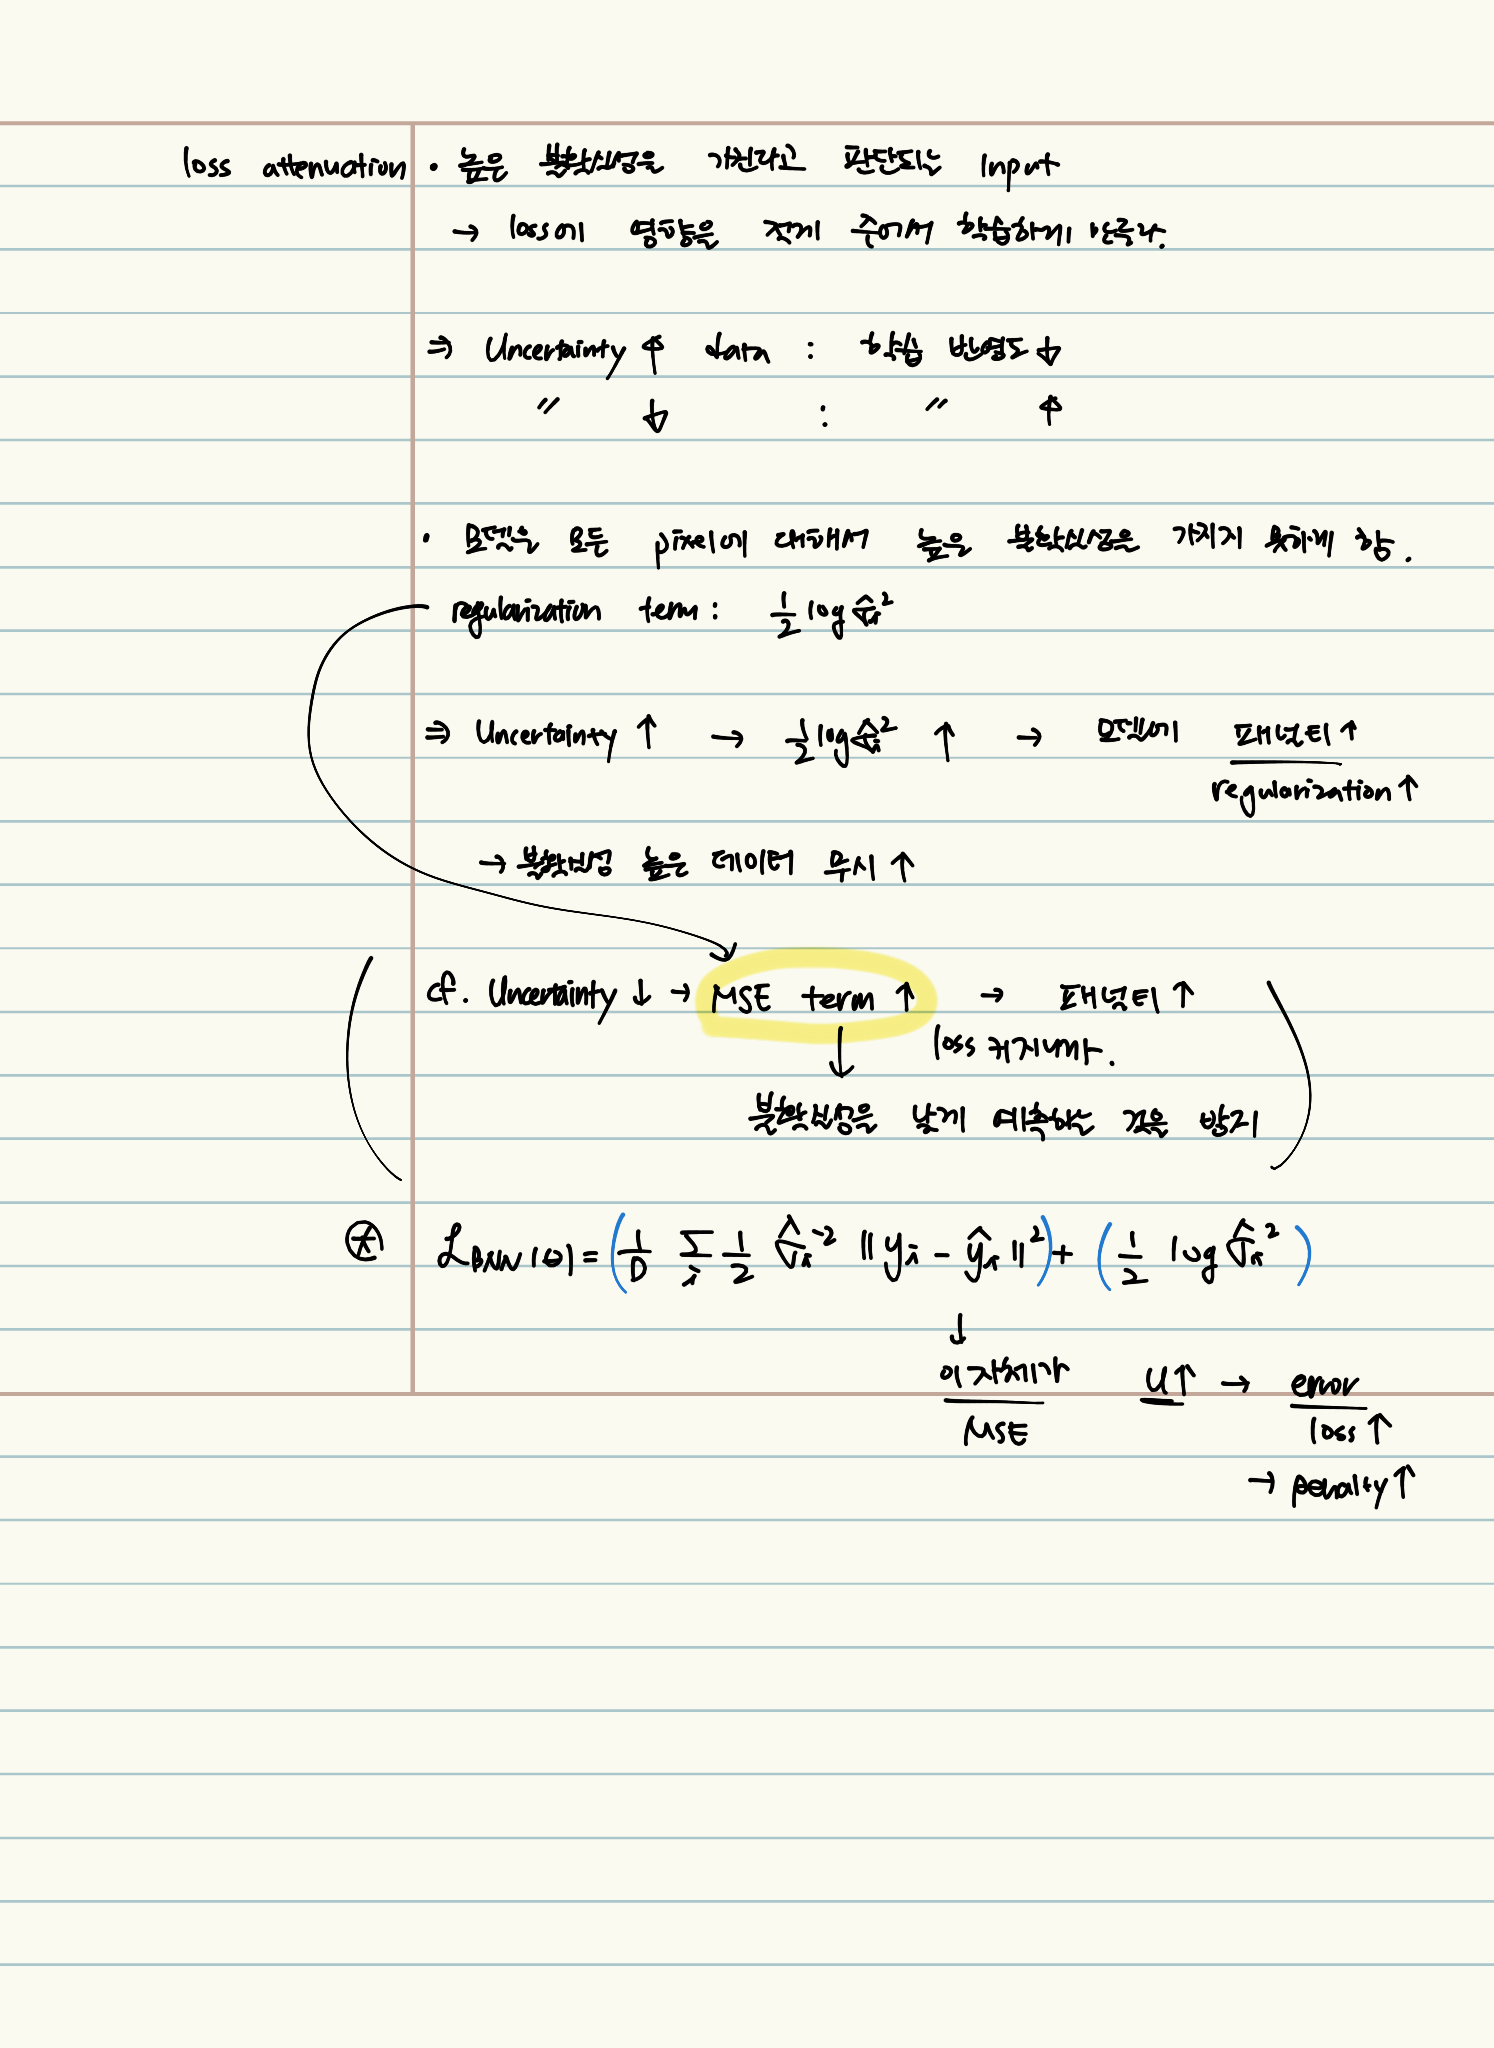 loss attenuation · 높은 불확실성을 가진다고 판단되는 input
→ loss에 영향을 적게 주어서 학습하게 만들라.
⇒ Uncertainty ↑ data : 학습 반영도 ↓
〃 ↓ : 〃 ↑
· 모델을 모든 pixel에 대해서 높은 불확실성을 가지지 못하게 함.
regularization term : ½ log σ̂ᵢ²
⇒ Uncertainty ↑ → ½ log σ̂ᵢ² ↑ → 모델에 패널티 ↑
regularization ↑
→ 불확실성 높은 데이터 무시 ↑
cf. Uncertainty ↓ → MSE term ↑ → 패널티 ↑
↓ loss 커지니까.
불확실성을 낮게 예측하는 것을 방지
⊛ 𝓛BNN(θ) = (1/D Σᵢ ½ σ̂ᵢ⁻² ‖yᵢ − ŷᵢ‖²) + (½ log σ̂ᵢ²)
↓
이 자체가 U↑ → error
MSE loss ↑
→ penalty ↑